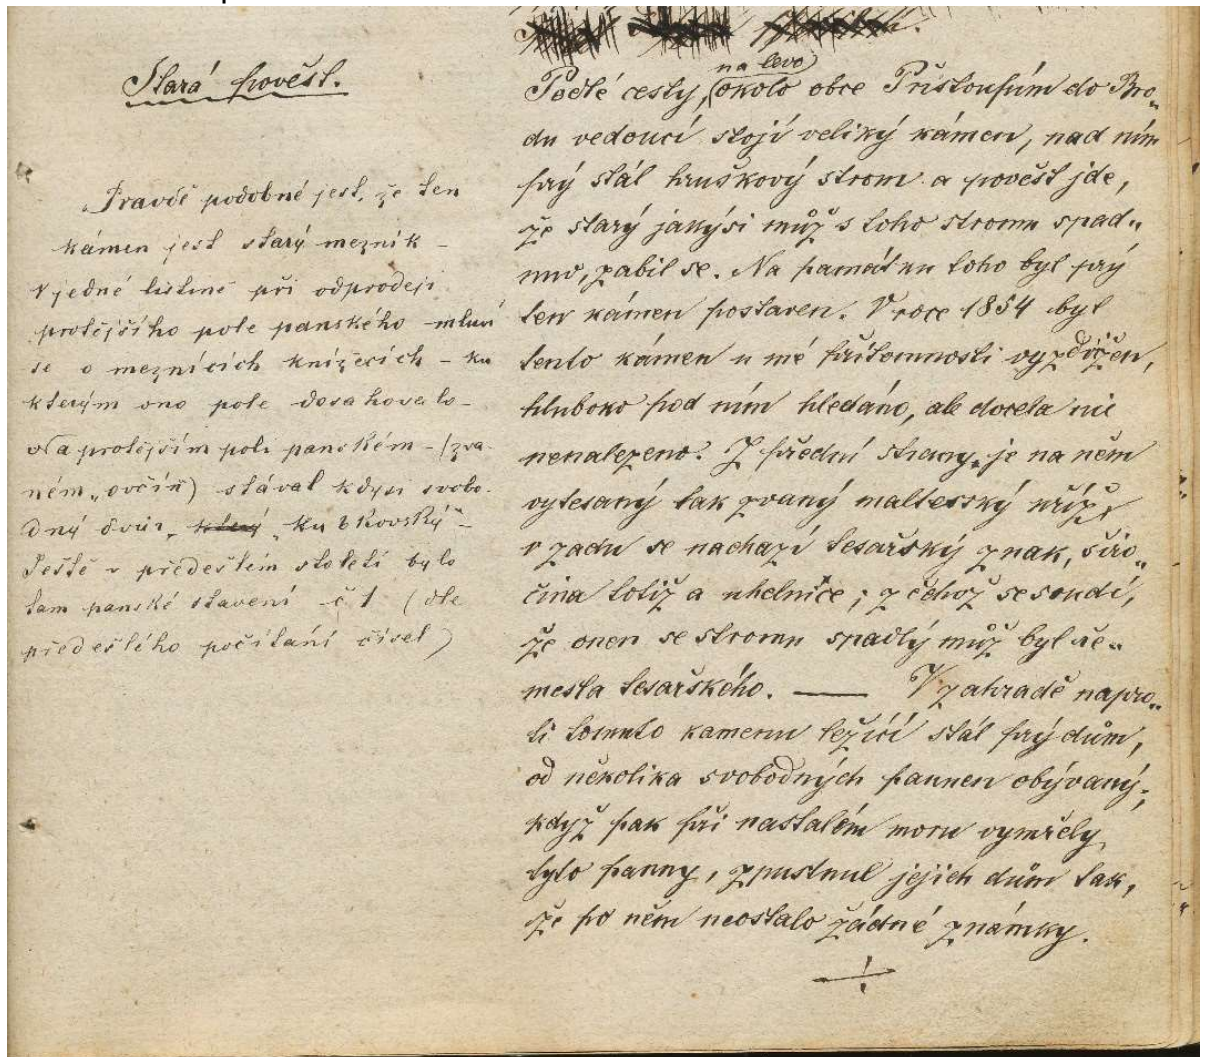 Stará pověst.
Pravdě podobné jest, že ten
kámen jest starý mezník –
V jedné listině při odprodeji
protějšího pole panského – mluví
se o meznících knížecích – ku
kterým ono pole dosahovalo –
Na protějším poli panském – (zva-
ném „ovčín) stával kdysi svobo-
dný dvůr „ který „Kubkovský" –
Ještě v předešlém století bylo
tam panské stavení č. 1 (dle
předešlého počítání čísel)
na levo
Podlé cesty, okolo obce Přistoupím do Bro„
du vedoucí stojí veliký kámen, nad ním
prý stál hruškový strom a pověst jde,
že starý jakýsi můž s toho stromu spad„
nuv, zabil se. Na památku toho byl prý
ten kámen postaven. V roce 1854 byl
tento kámen u mé přítomnosti vyzdvižen,
hluboko pod ním hledáno, ale docela nic
nenalezeno. Z přední strany je na něm
vytesaný tak zvaný maltesský kříž,
v zadu se nachazí tesařský znak, širo„
čina totiž a uhelnice; z čehož se soudí,
že onen se stromu spadlý můž byl ře„
mesla tesařského. — V zahradě napro„
ti tomuto kamenu ležící stál prý dům,
od několika svobodných pannen obývaný;
když pak při nastalém moru vymřely
tyto panny, zpustnul jejich dům tak,
že po něm neostalo žádné známky.